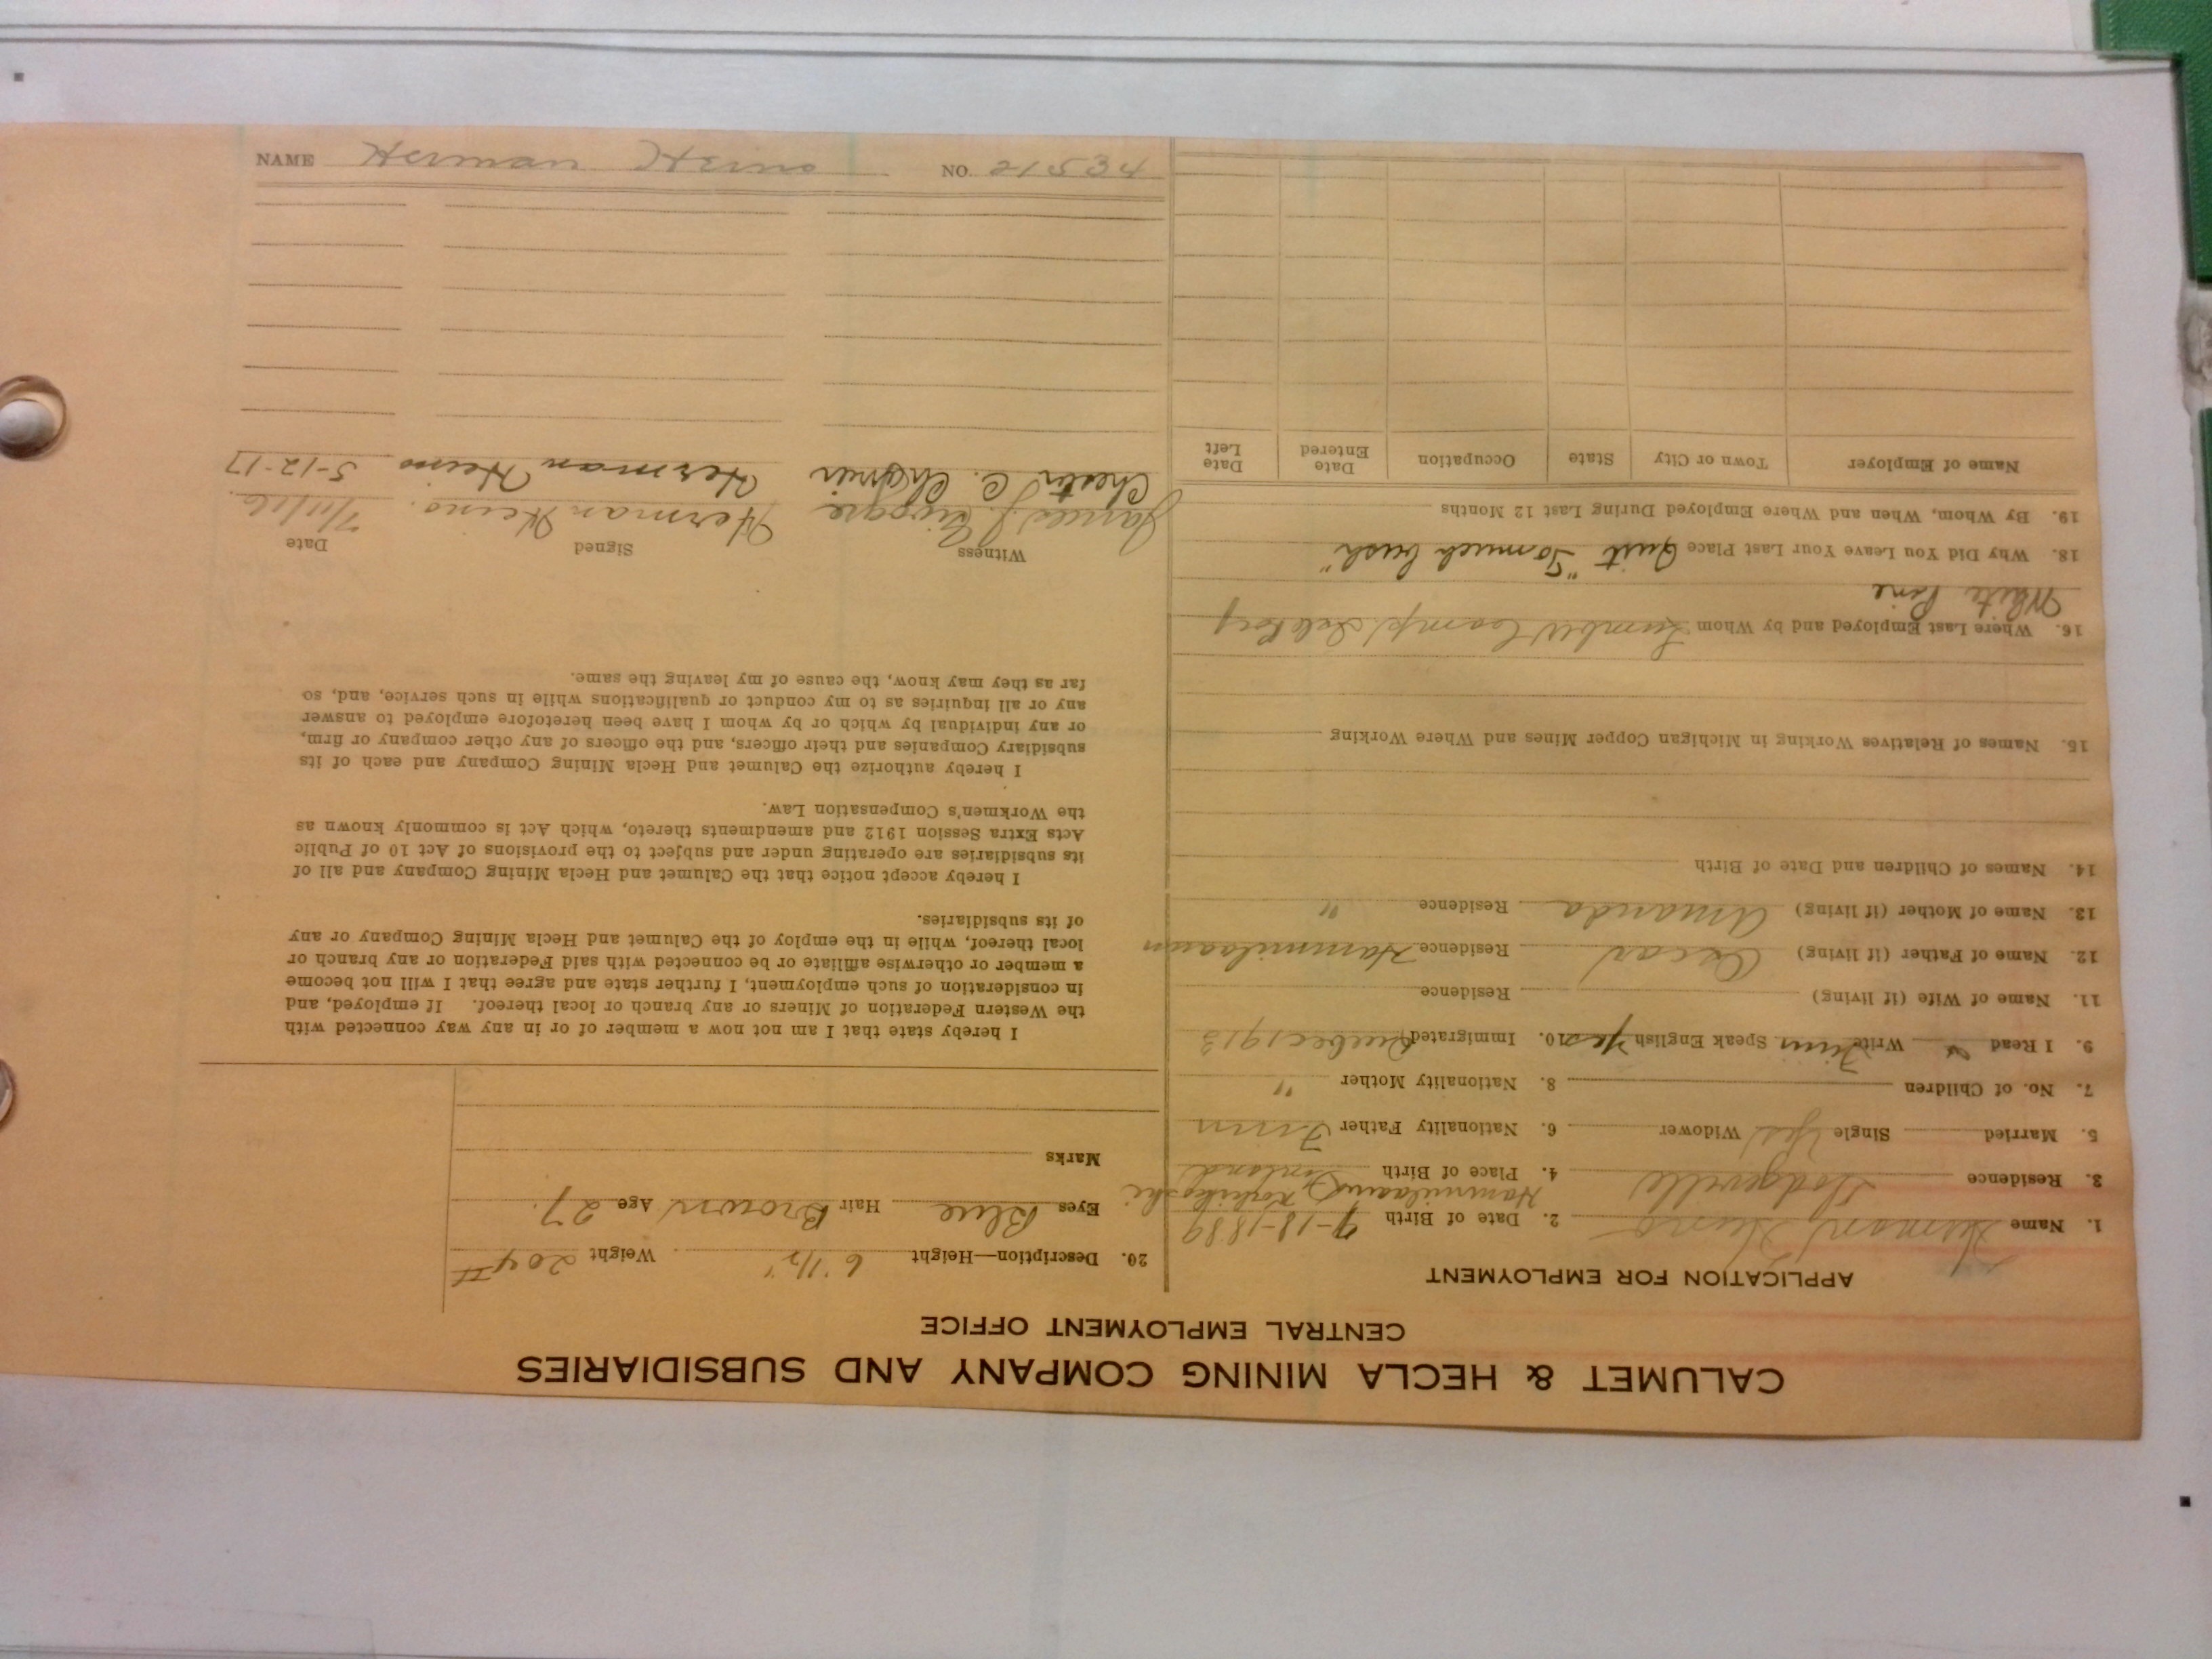 CALUMET & HECLA MINING COMPANY AND SUBSIDIARIES
CENTRAL EMPLOYMENT OFFICE
APPLICATION FOR EMPLOYMENT
1. Name Herman Heino 2. Date of Birth 9-18-1889
3. Residence Dodgeville 4. Place of Birth Finland
5. Married Single Yes Widower 6. Nationality Father Finn
7. No. of Children 8. Nationality Mother "
9. I Read & Write Finn Speak English Yes 10. Immigrated Quebec 1913
11. Name of Wife (if living) Residence
12. Name of Father (if living) Oscar Residence
13. Name of Mother (if living) Amanda Residence "
14. Names of Children and Date of Birth
15. Names of Relatives Working in Michigan Copper Mines and Where Working
16. Where Last Employed and by Whom Camp
White Pine
18. Why Did You Leave Your Last Place Quit "To much bush"
19. By Whom, When and Where Employed During Last 12 Months
Name of Employer Town or City State Occupation Date Entered Date Left
20. Description—Height 6' 1/2" Weight 204 #
Eyes Blue Hair Brown Age 27
Marks
I hereby state that I am not now a member of or in any way connected with
the Western Federation of Miners or any branch or local thereof. If employed, and
in consideration of such employment, I further state and agree that I will not become
a member or otherwise affiliate or be connected with said Federation or any branch or
local thereof, while in the employ of the Calumet and Hecla Mining Company or any
of its subsidiaries.
I hereby accept notice that the Calumet and Hecla Mining Company and all of
its subsidiaries are operating under and subject to the provisions of Act 10 of Public
Acts Extra Session 1912 and amendments thereto, which Act is commonly known as
the Workmen's Compensation Law.
I hereby authorize the Calumet and Hecla Mining Company and each of its
subsidiary Companies and their officers, and the officers of any other company or firm,
or any individual by which or by whom I have been heretofore employed to answer
any or all inquiries as to my conduct or qualifications while in such service, and, so
far as they may know, the cause of my leaving the same.
Witness Signed Date
James J. Herman Heino. 7/11/16.
Chester C. Herman Heino 5-12-17
NAME Herman Heino NO. 21534